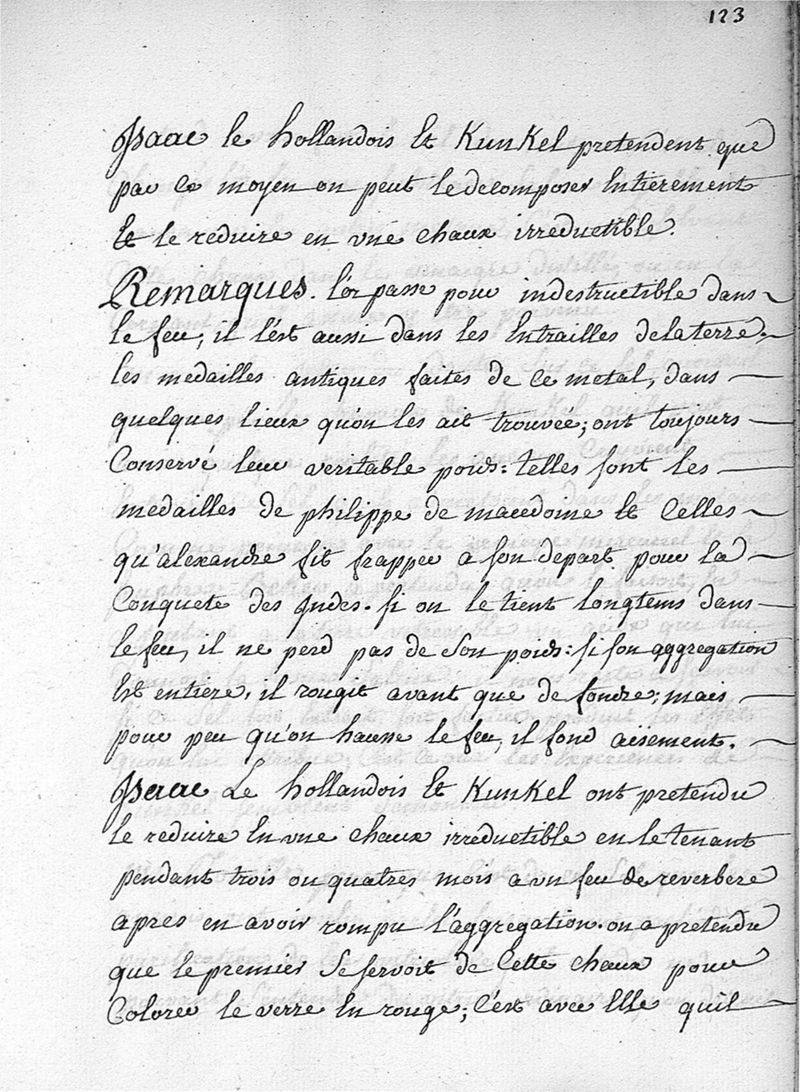 123
Isaac le hollandois Et Kunkel pretendent que
par Ce moyen on peut le decomposer Entierement
Et le reduire en une chaux irreductible.
Remarques. l'or passe pour indestructible dans
le feu, il l'est aussi dans les Entrailles de la terre,
les medailles antiques faites de Ce metal, dans
quelques lieux qu'on les ait trouvée; ont toujours
Conservé leur veritable poids: telles sont les
medailles de philippe de macedoine Et Celles
qu'alexandre fit frapper a son depart pour la
Conquete des Indes. si on le tient longtems dans
le feu, il ne perd pas de son poids: si son aggregation
Est entiere, il rougit avant que de fondre; mais
pour peu qu'on hausse le feu, il fond aisement.
Isaac Le hollandois Et Kunkel ont pretendu
le reduire En une chaux irreductible en le tenant
pendant trois ou quatres mois a un feu de reverbere
apres en avoir rompu l'aggregation. on a pretendu
que le premier se servoit de Cette chaux pour
Colorer le verre En rouge; C'est avec Elle qu'il